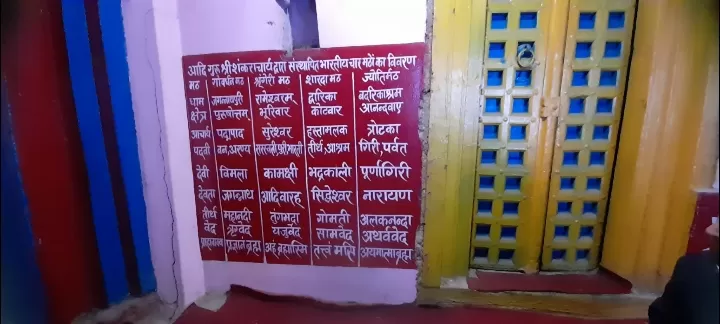 आदि गुरू श्री शंकराचार्य द्वारा संस्थापित भारतीय चार मठों का विवरण
मठ गोवर्धन मठ श्रृंगेरी मठ शारदा मठ ज्योतिर्मठ
धाम जगन्नाथपुरी रामेश्वरम् द्वारिका बदरिकाश्रम
क्षेत्र पुरुषोत्तम् भूरिवार कीटवार आनन्दवार
आचार्य पद्मपाद सुरेश्वर हस्तामलक त्रोटका
पदवी वन,अरण्य सरस्वती,पुरी,भारती तीर्थ,आश्रम गिरी,पर्वत
देवी विमला कामक्षी भद्रकाली पूर्णागिरी
देवता जगन्नाथ आदि वारह सिद्धेश्वर नारायण
तीर्थ महानदी तुंगभद्रा गोमती अलकनन्दा
वेद ऋग्वेद यजुर्वेद सामवेद अथर्ववेद
महावाक्य प्रज्ञानं ब्रह्म अहं ब्रह्मास्मि तत्त्वं मसि अयमात्मा ब्रह्म